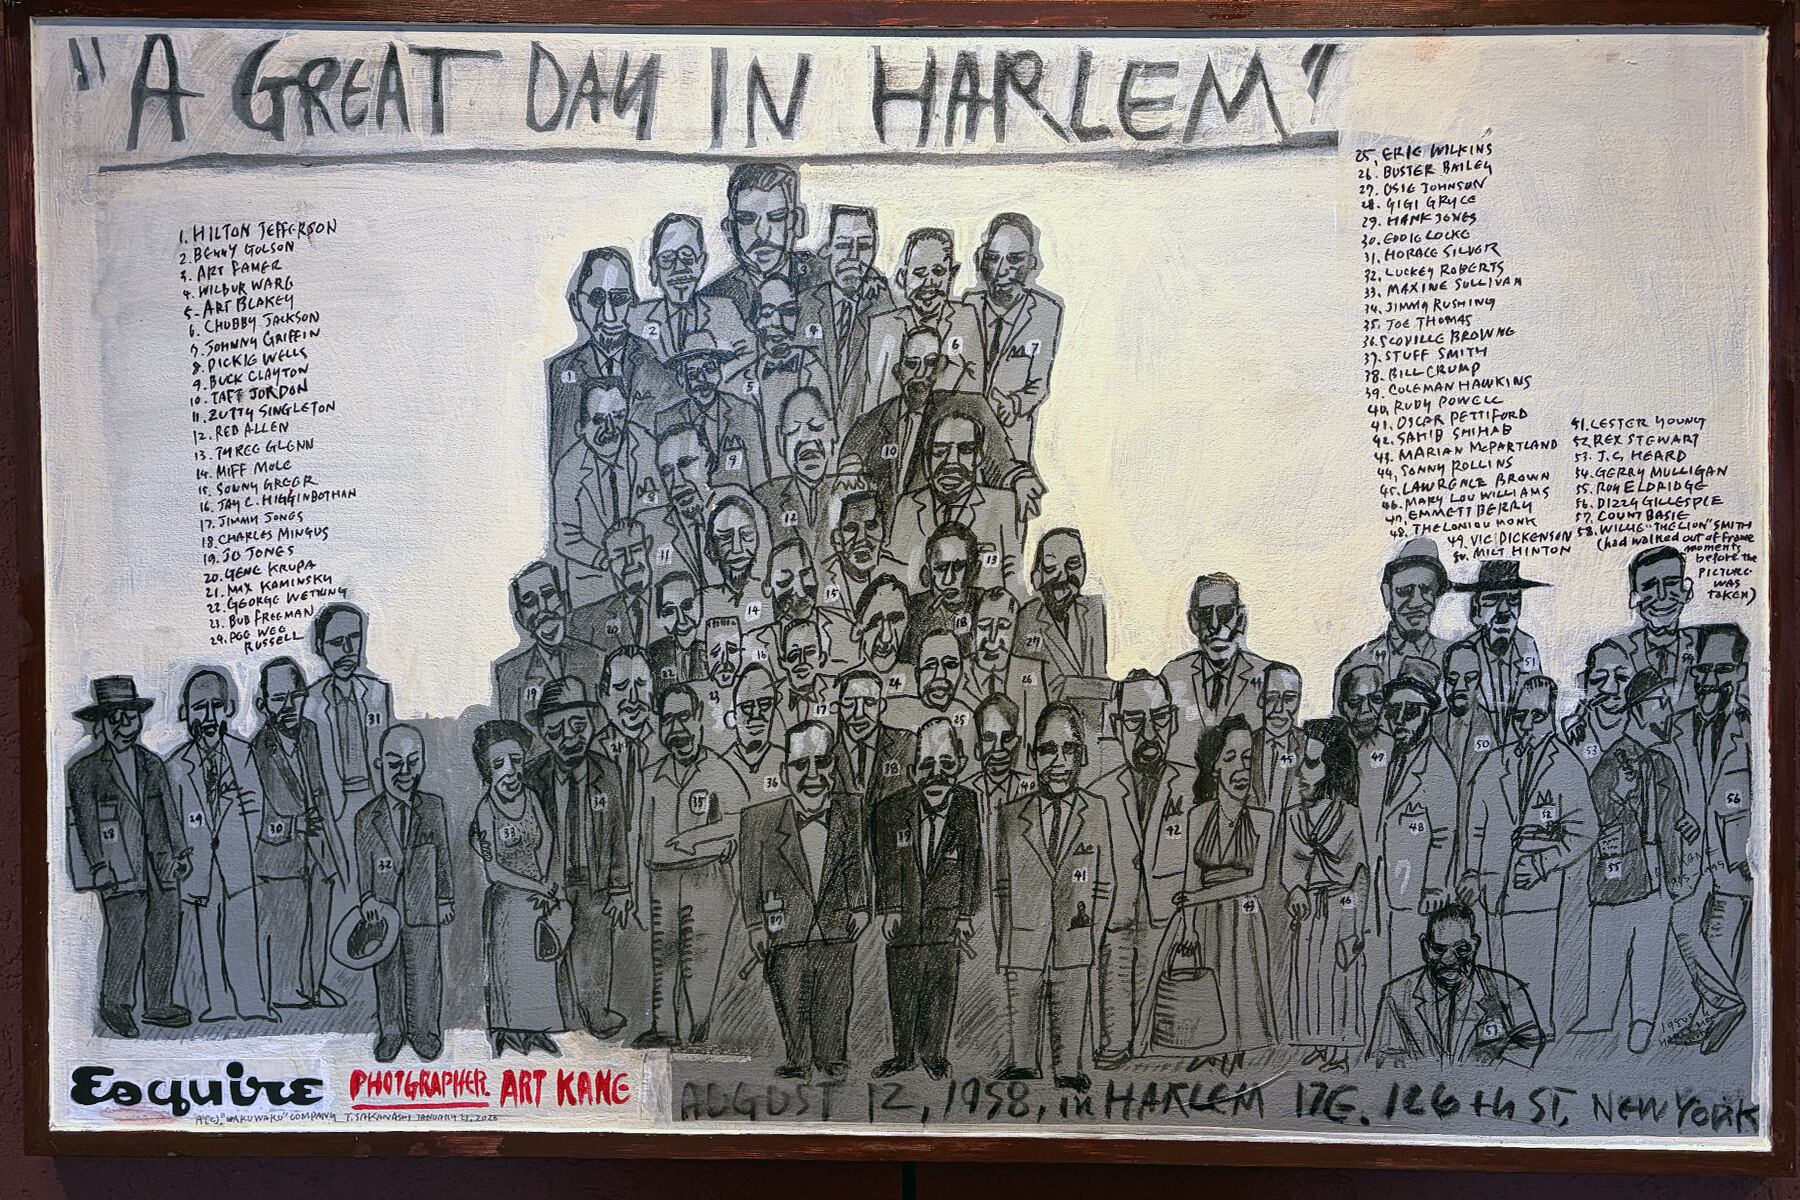 "A GREAT DAY IN HARLEM"
1. HILTON JEFFERSON
2. BENNY GOLSON
3. ART FAMER
4. WILBUR WARE
5. ART BLAKEY
6. CHUBBY JACKSON
7. JOHNNY GRIFFIN
8. DICKIE WELLS
9. BUCK CLAYTON
10. TAFT JORDON
11. ZUTTY SINGLETON
12. RED ALLEN
13. TYREE GLENN
14. MIFF MOLE
15. SONNY GREER
16. JAY C. HIGGINBOTHAN
17. JIMMY JONES
18. CHARLES MINGUS
19. JO JONES
20. GENE KRUPA
21. MAX KAMINSKY
22. GEORGE WETTLING
23. BUD FREEMAN
24. PEE WEE
RUSSELL
25. ERIE WILKINS
26. BUSTER BAILEY
27. OSIE JOHNSON
28. GIGI GRYCE
29. HANK JONES
30. EDDIE LOCKE
31. HORACE SILVER
32. LUCKEY ROBERTS
33. MAXINE SULLIVAN
34. JIMMY RUSHING
35. JOE THOMAS
36. SCOVILLE BROWNE
37. STUFF SMITH
38. BILL CRUMP
39. COLEMAN HAWKINS
40. RUDY POWELL
41. OSCAR PETTIFORD
42. SAHIB SHIHAB
43. MARIAN McPARTLAND
44. SONNY ROLLINS
45. LAWRENCE BROWN
46. MARY LOU WILLIAMS
47. EMMETT BERRY
48. THELONIOU MONK
49. VIC DICKENSON
50. MILT HINTON
51. LESTER YOUNG
52. REX STEWART
53. J.C. HEARD
54. GERRY MULLIGAN
55. ROY ELDRIDGE
56. DIZZY GILLESPIE
57. COUNT BASIE
58. WILLIE "THE LION" SMITH
(had walked out of frame
moments
before the
PICTURE
WAS
TAKEN)
Esquire
PHOTGRAPHER. ART KANE
T. SAKANASHI JANUARY
AUGUST 12, 1958, in HARLEM 17E. 126th ST, NEW YORK